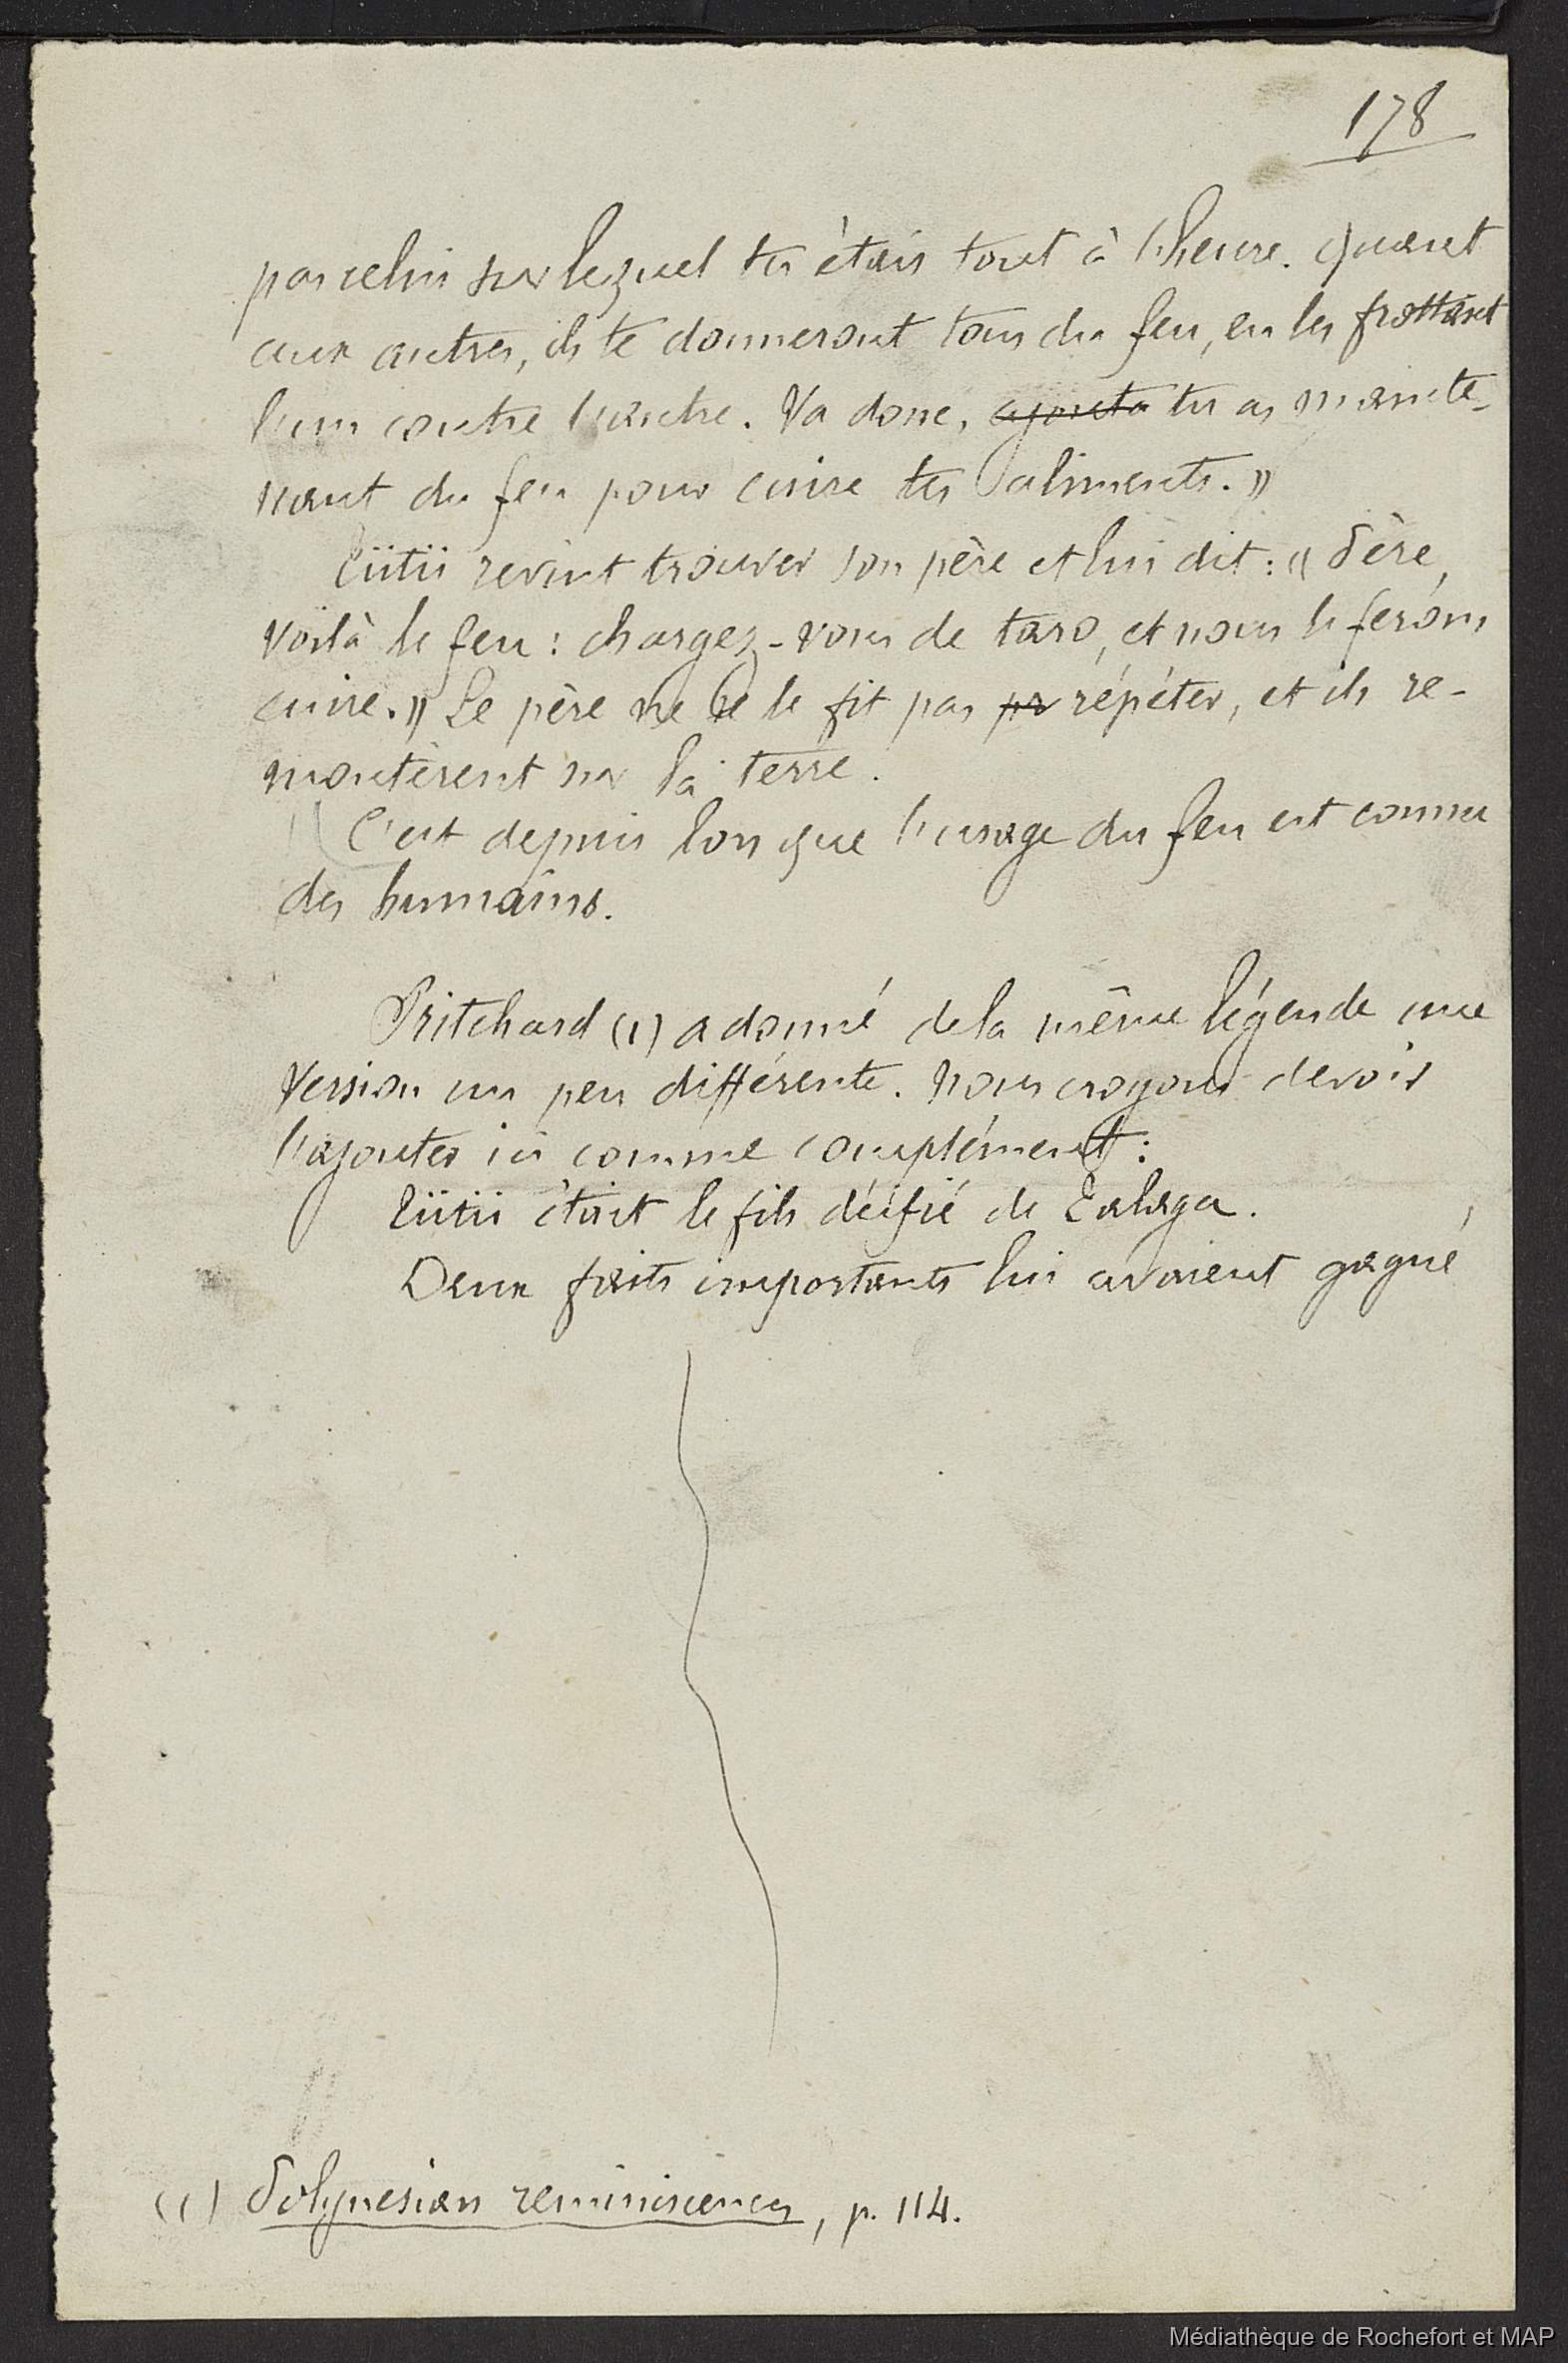 178
par celui sur lequel tu étais tout à l'heure. Quant
aux autres, ils te donneront tous du feu, en les frottant
l'un contre l'autre. Va donc, ajouta tu as mainte-
nant du feu pour cuire tes aliments. »
Tiitii revint trouver son père et lui dit : « Père,
voilà le feu : chargez-vous de taro, et nous le ferons
cuire. » Le père ne se le fit pas pr répéter, et ils re-
montèrent sur la terre.
C'est depuis lors que l'usage du feu est connu
des humains.
Pritchard (1) a donné de la même légende une
version un peu différente. Nous croyons devoir
l'ajouter ici comme complément :
Tiitii était le fils déifié de Talaga.
Deux faits importants lui avaient gagné
(1) Polynesian reminiscences, p. 114.
Médiathèque de Rochefort et MAP